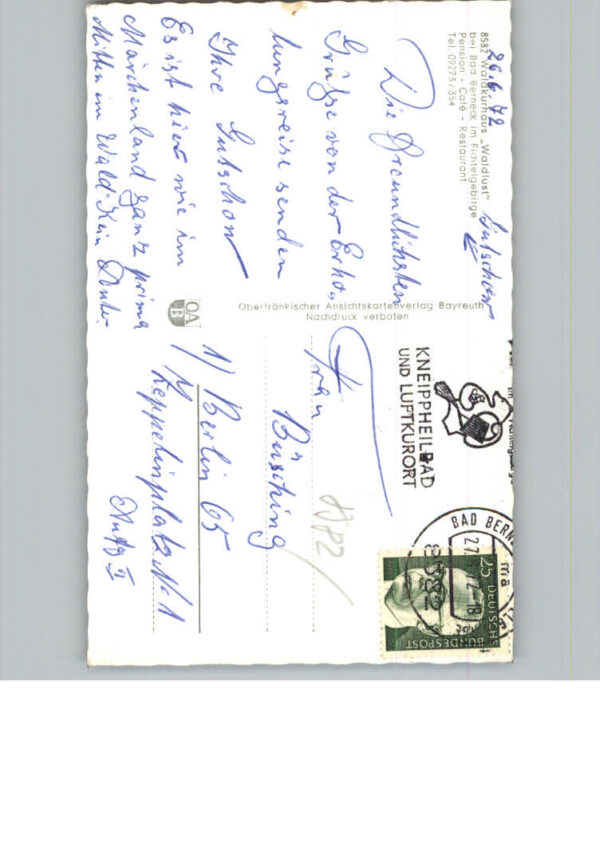 8582 Waldkurhaus „Waldlust"
bei Bad Berneck im Fichtelgebirge
Pension - Café - Restaurant
Tel. 09273/354
26.6.72
Die Freundlichsten
Grüße von der Erho-
lungsreise senden
Ihre Gutschow
Es ist hier wie im
Märchenland ganz prima
Mitten im Wald. Kein
Gutschow
Oberfränkischer Ansichtskartenverlag Bayreuth
Nachdruck verboten
OA
B
KNEIPPHEILBAD
UND LUFTKURORT
BAD BERN
8582
25 DEUTSCHE
BUNDESPOST
Frau
Büsching
1) Berlin 65
Zeppelinplatz No 1
Aufg II